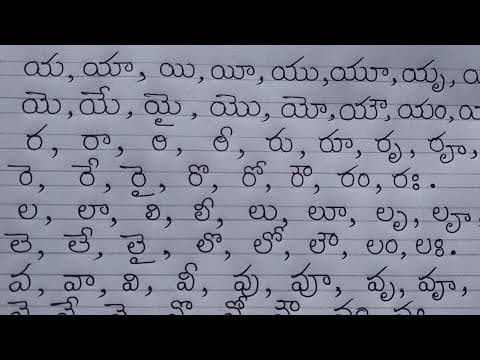 య, యా, యి, యీ, యు, యూ, యృ,
యె, యే, యై, యొ, యో, యౌ, యం,
ర, రా, రి, రీ, రు, రూ, రృ, రౄ,
రె, రే, రై, రొ, రో, రౌ, రం, రః.
ల, లా, లి, లీ, లు, లూ, లృ, లౄ,
లె, లే, లై, లొ, లో, లౌ, లం, లః.
వ, వా, వి, వీ, వు, వూ, వృ, వౄ,